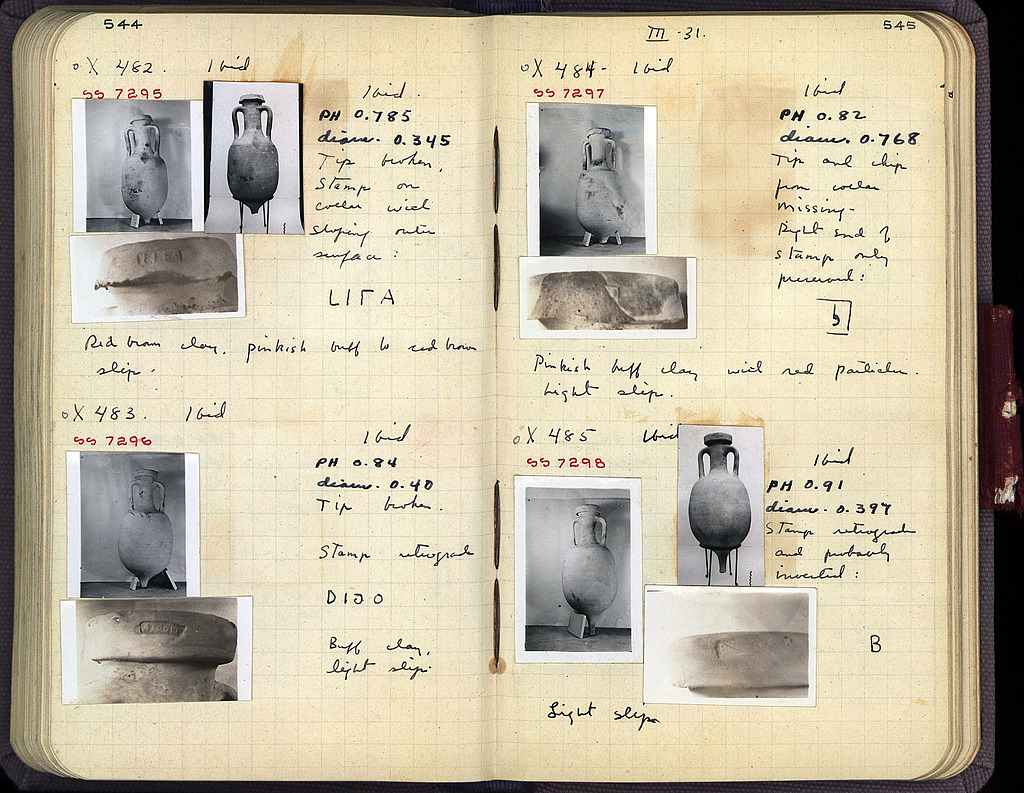 544
OX 482. Ibid
SS 7295
Ibid.
PH 0.785
diam. 0.345
Tip broken,
Stamp on
collar with
sloping outer
surface:
LITA
Red brown clay, pinkish buff to red brown
slip.
OX 483. Ibid
SS 7296
Ibid
PH 0.84
diam. 0.40
Tip broken.
Stamp retrograde
DIJO
Buff clay,
light slip.
III -31.
545
OX 484- Ibid
SS 7297
Ibid
PH 0.82
diam. 0.768
Tip and chip
from collar
missing-
Right end of
stamp only
preserved:
b
Pinkish buff clay with red particles.
Light slip.
OX 485 Ibid
SS 7298
Ibid
PH 0.91
diam. 0.397
Stamp retrograde
and probably
inverted:
B
Light slip